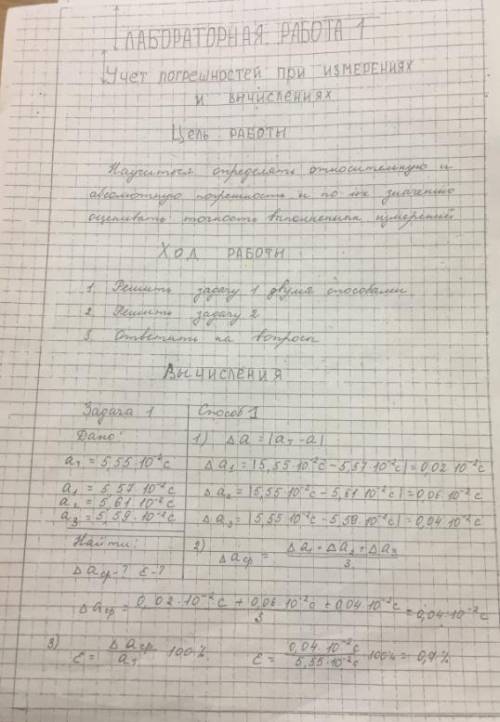 ЛАБОРАТОРНАЯ РАБОТА 1
Учет погрешностей при измерениях
и вычислениях
Цель работы
Научиться определять относительную и
абсолютную погрешность и по их значению
оценивать точность выполнения измерений
Ход работы
1. Решить задачу 1 двумя способами
2. Решить задачу 2
3. Ответить на вопросы
Вычисления
Задача 1
Способ 1
Дано:
1) Δa = |aт - a|
aт = 5,55·10⁻²c
Δa₁ = |5,55·10⁻²c - 5,57·10⁻²c| = 0,02·10⁻²c
a₁ = 5,57·10⁻²c
a₂ = 5,61·10⁻²c
Δa₂ = |5,55·10⁻²c - 5,61·10⁻²c| = 0,06·10⁻²c
a₃ = 5,59·10⁻²c
Δa₃ = |5,55·10⁻²c - 5,59·10⁻²c| = 0,04·10⁻²c
Найти:
2) Δaср = (Δa₁ + Δa₂ + Δa₃)/3
Δaср-? ε-?
Δaср = (0,02·10⁻²c + 0,06·10⁻²c + 0,04·10⁻²c)/3 = 0,04·10⁻²c
3) ε = Δaср/aт 100% ε = 0,04·10⁻²c/5,55·10⁻²c 100% = 0,7%